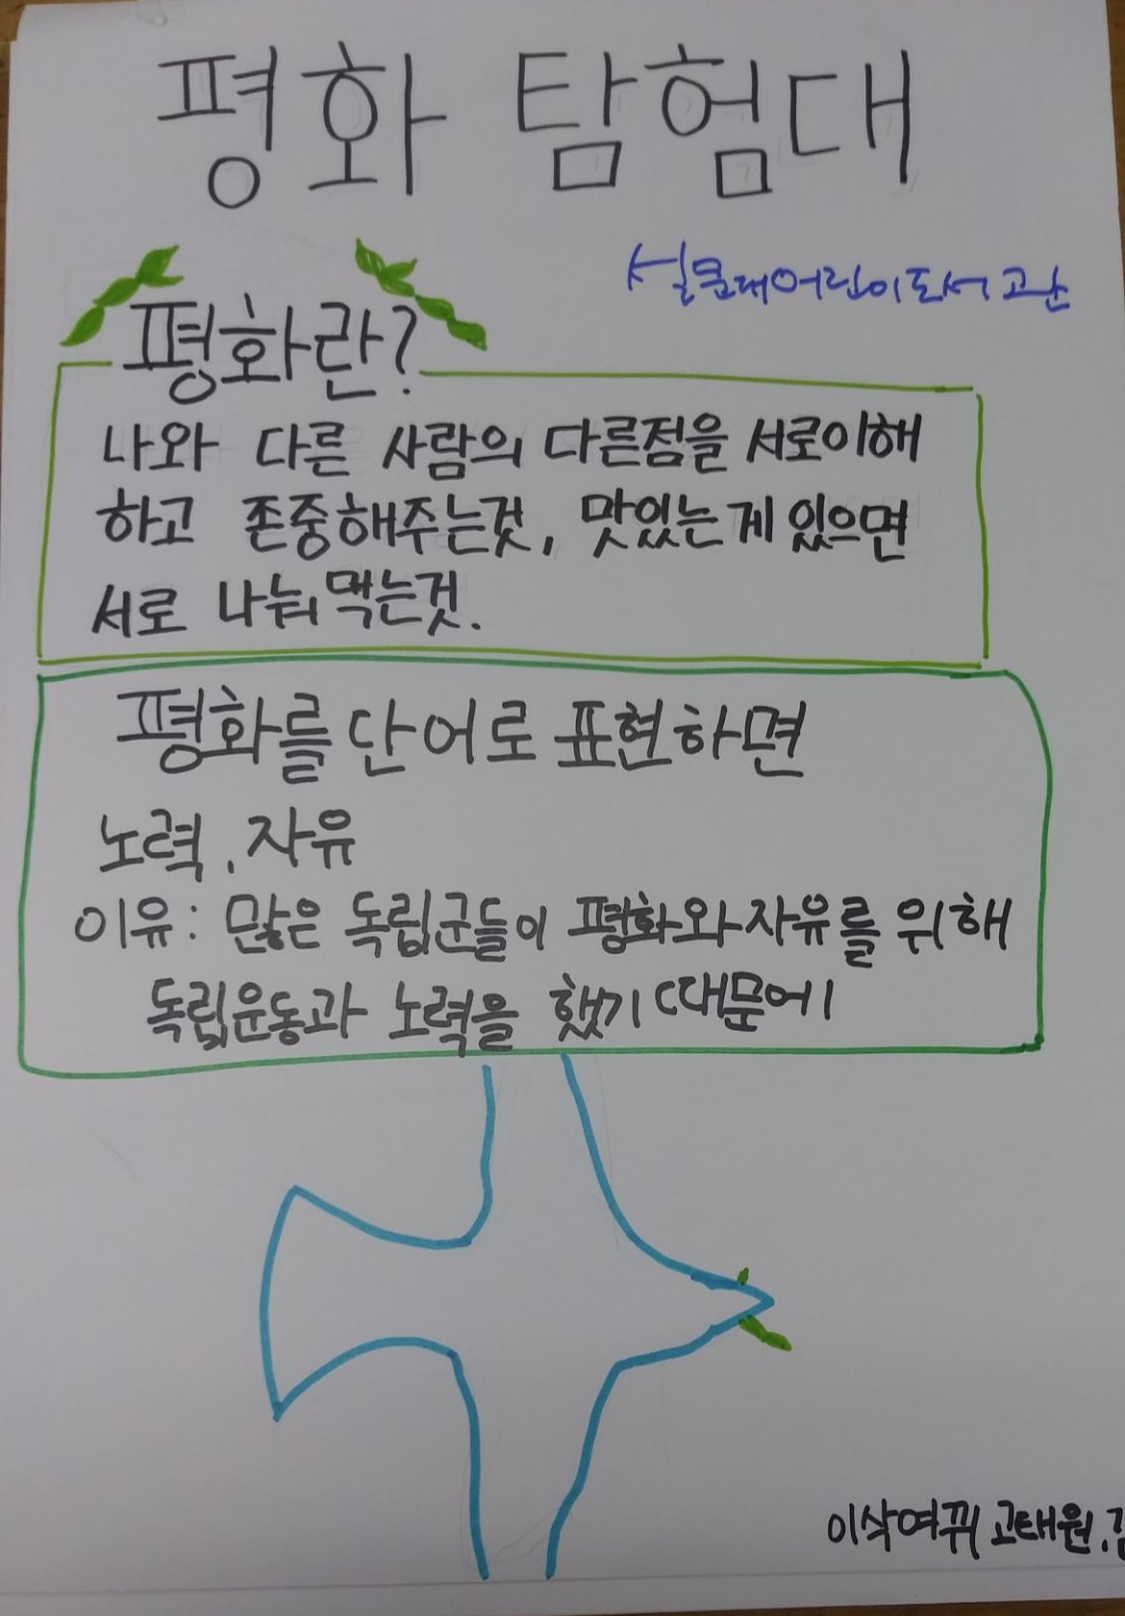 평화 탐험대
설문대어린이도서관
평화란?
나와 다른 사람의 다른점을 서로이해
하고 존중해주는것, 맛있는게 있으면
서로 나눠 먹는것.
평화를 단어로 표현하면
노력, 자유
이유: 많은 독립군들이 평화와 자유를 위해
독립운동과 노력을 했기 때문에
이삭여뀌 고태원.